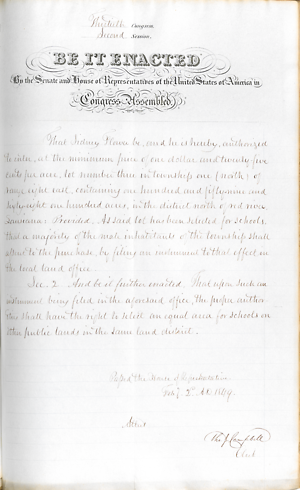 Thirtieth Congress,
Second Session,
BE IT ENACTED
By the Senate and House of Representatives of the United States of America in
Congress Assembled,
That Sidney Flower be, and he is hereby, authorized
to enter, at the minimum price of one dollar and twenty five
cents per acre, lot number three in township one (north) of
range eight east, containing one hundred and fifty nine and
sixty eight one hundred acres, in the district north of red river
Louisiana: Provided, As said lot has been selected for schools
that a majority of the male inhabitants of the township shall
assent to the purchase, by filing an instrument to that effect in
the local land office.
Sec. 2. And be it further enacted, That upon such an
instrument being filed in the aforesaid office, the proper author
ities shall have the right to select an equal area for schools on
other public lands in the same land district.
Passed the House of Representatives
Feby. 2d. 1849.
Attest
Tho J Campbell
Clerk